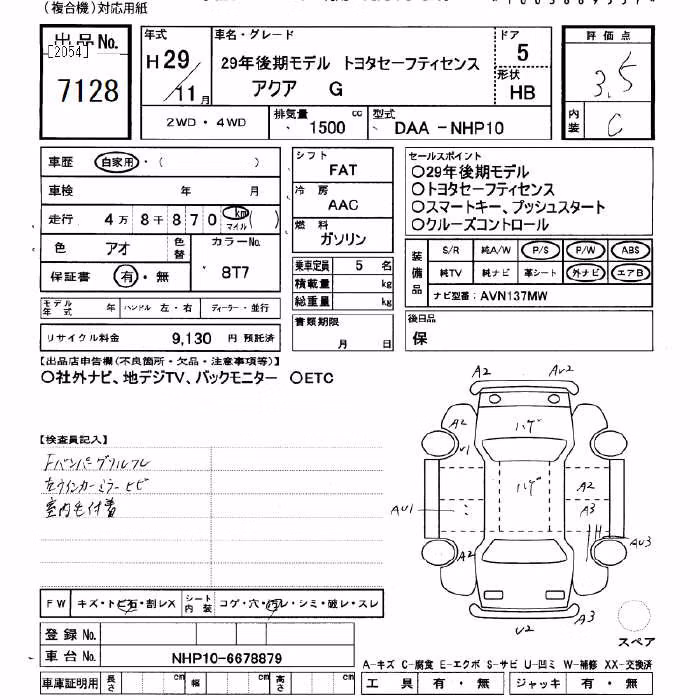 (複合機)対応用紙
出品No.
[2054]
7128
年式
H 29 / 11 月
車名・グレード
29年後期モデル トヨタセーフティセンス
アクア G
ドア
5
形状
HB
評価点
3.5
内装
C
2WD・4WD
排気量
1500 cc
型式
DAA -NHP10
車歴 自家用・( )
車検 年 月
走行 4万8千870 km マイル ( )
色 アオ
色替
カラーNo.
8T7
保証書 有・無
モデル年式 年 ハンドル 左・右 ディーラー・並行
リサイクル料金 9,130 円 預託済
シフト
FAT
冷房
AAC
燃料
ガソリン
乗車定員 5 名
積載量 kg
総重量 kg
書類期限
月 日
セールスポイント
○29年後期モデル
○トヨタセーフティセンス
○スマートキー、プッシュスタート
○クルーズコントロール
装備品
S/R 純A/W P/S P/W ABS
純TV 純ナビ 革シート 外ナビ エアB
ナビ型番: AVN137MW
後日品
保
【出品店申告欄(不良箇所・欠品・注意事項等)】
○社外ナビ、地デジTV、バックモニター ○ETC
【検査員記入】
Fバンパーグリルフレ
左ウインカーミラーヒビ
室内毛付着
A2 AU2
A2 ハゲ
U1
ハゲ A2
AU1 A3
A2 AU3
U2 A3
スペア
FW キズ・トビ石・割レX シート内装 コゲ・穴・汚レ・シミ・破レ・スレ
登録No.
車台No. NHP10-6678879
車庫証明用 長さ cm 幅 cm 高さ cm
A-キズ C-腐食 E-エクボ S-サビ U-凹ミ W-補修 XX-交換済
工具 有・無 ジャッキ 有・無